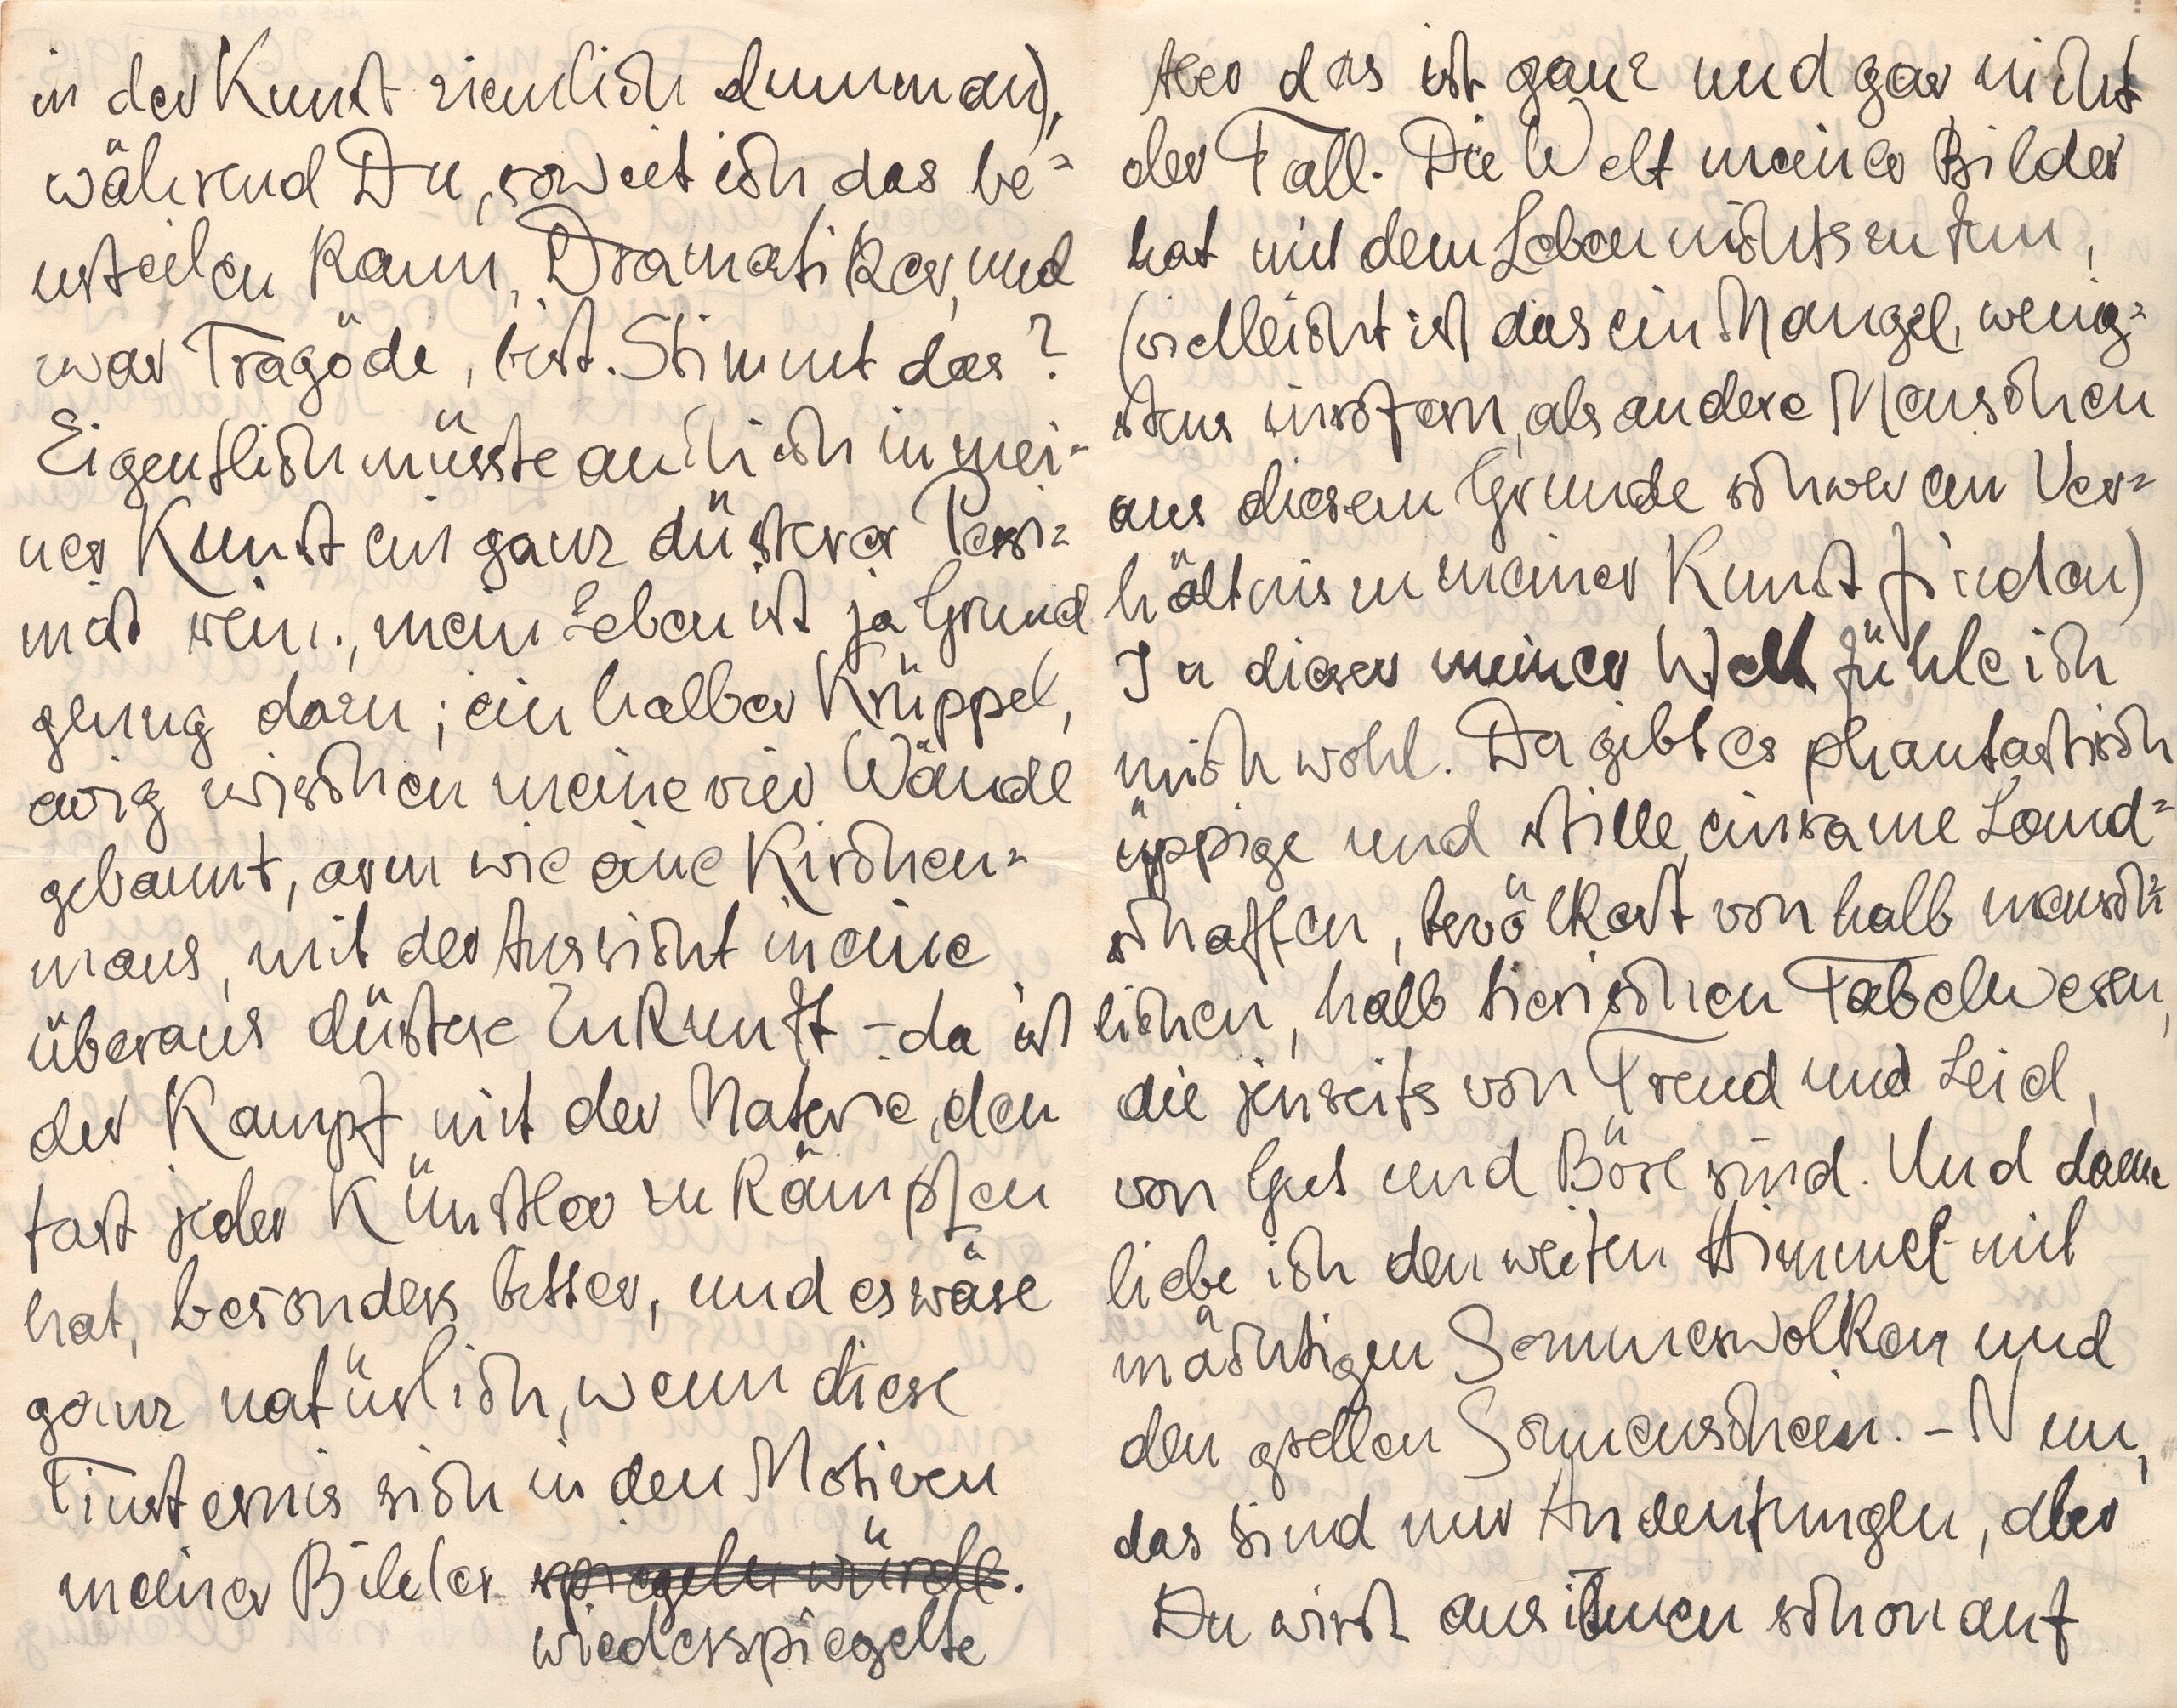 in der Kunst ziemlich dumm an),
während Du, soweit ich das be=
urteilen kann, Dramatiker, und
zwar Tragöde, bist. Stimmt das?
Eigentlich müsste auch ich in mei-
ner Kunst ein ganz düsterer Pessi=
mist sein., mein Leben ist ja Grund
genug dazu; ein halber Krüppel,
ewig zwischen meine vier Wände
gebannt, arm wie eine Kirchen=
maus, mit der Aussicht in eine
überaus düstere Zukunft – da ist
der Kampf mit der Materie, den
fast jeder Künstler zu kämpfen
hat, besonders bitter, und es wäre
ganz natürlich, wenn diese
Finsternis sich in den Motiven
meiner Bilder spiegeln würde.
wiederspiegelte
Aber das ist ganz und gar nicht
der Fall. Die Welt meiner Bilder
hat mit dem Leben nichts zu tun,
(vielleicht ist das ein Mangel, wenig=
stens insofern, als andere Menschen
aus diesem Grunde schwer ein Ver=
hältnis zu meiner Kunst finden)
In dieser meiner Welt fühle ich
mich wohl. Da gibt es phantastisch
üppige und stille, einsame Land=
schaften, bevölkert von halb mensch=
lichen, halb tierischen Fabelwesen,
die jenseits von Freud und Leid,
von Gut und Böse sind. Und dann
liebe ich den weiten Himmel mit
mächtigen Sommerwolken und
den grellen Sonnenschein. – Nun,
das sind nur Andeutungen, aber
Du wirst aus ihnen schon auf